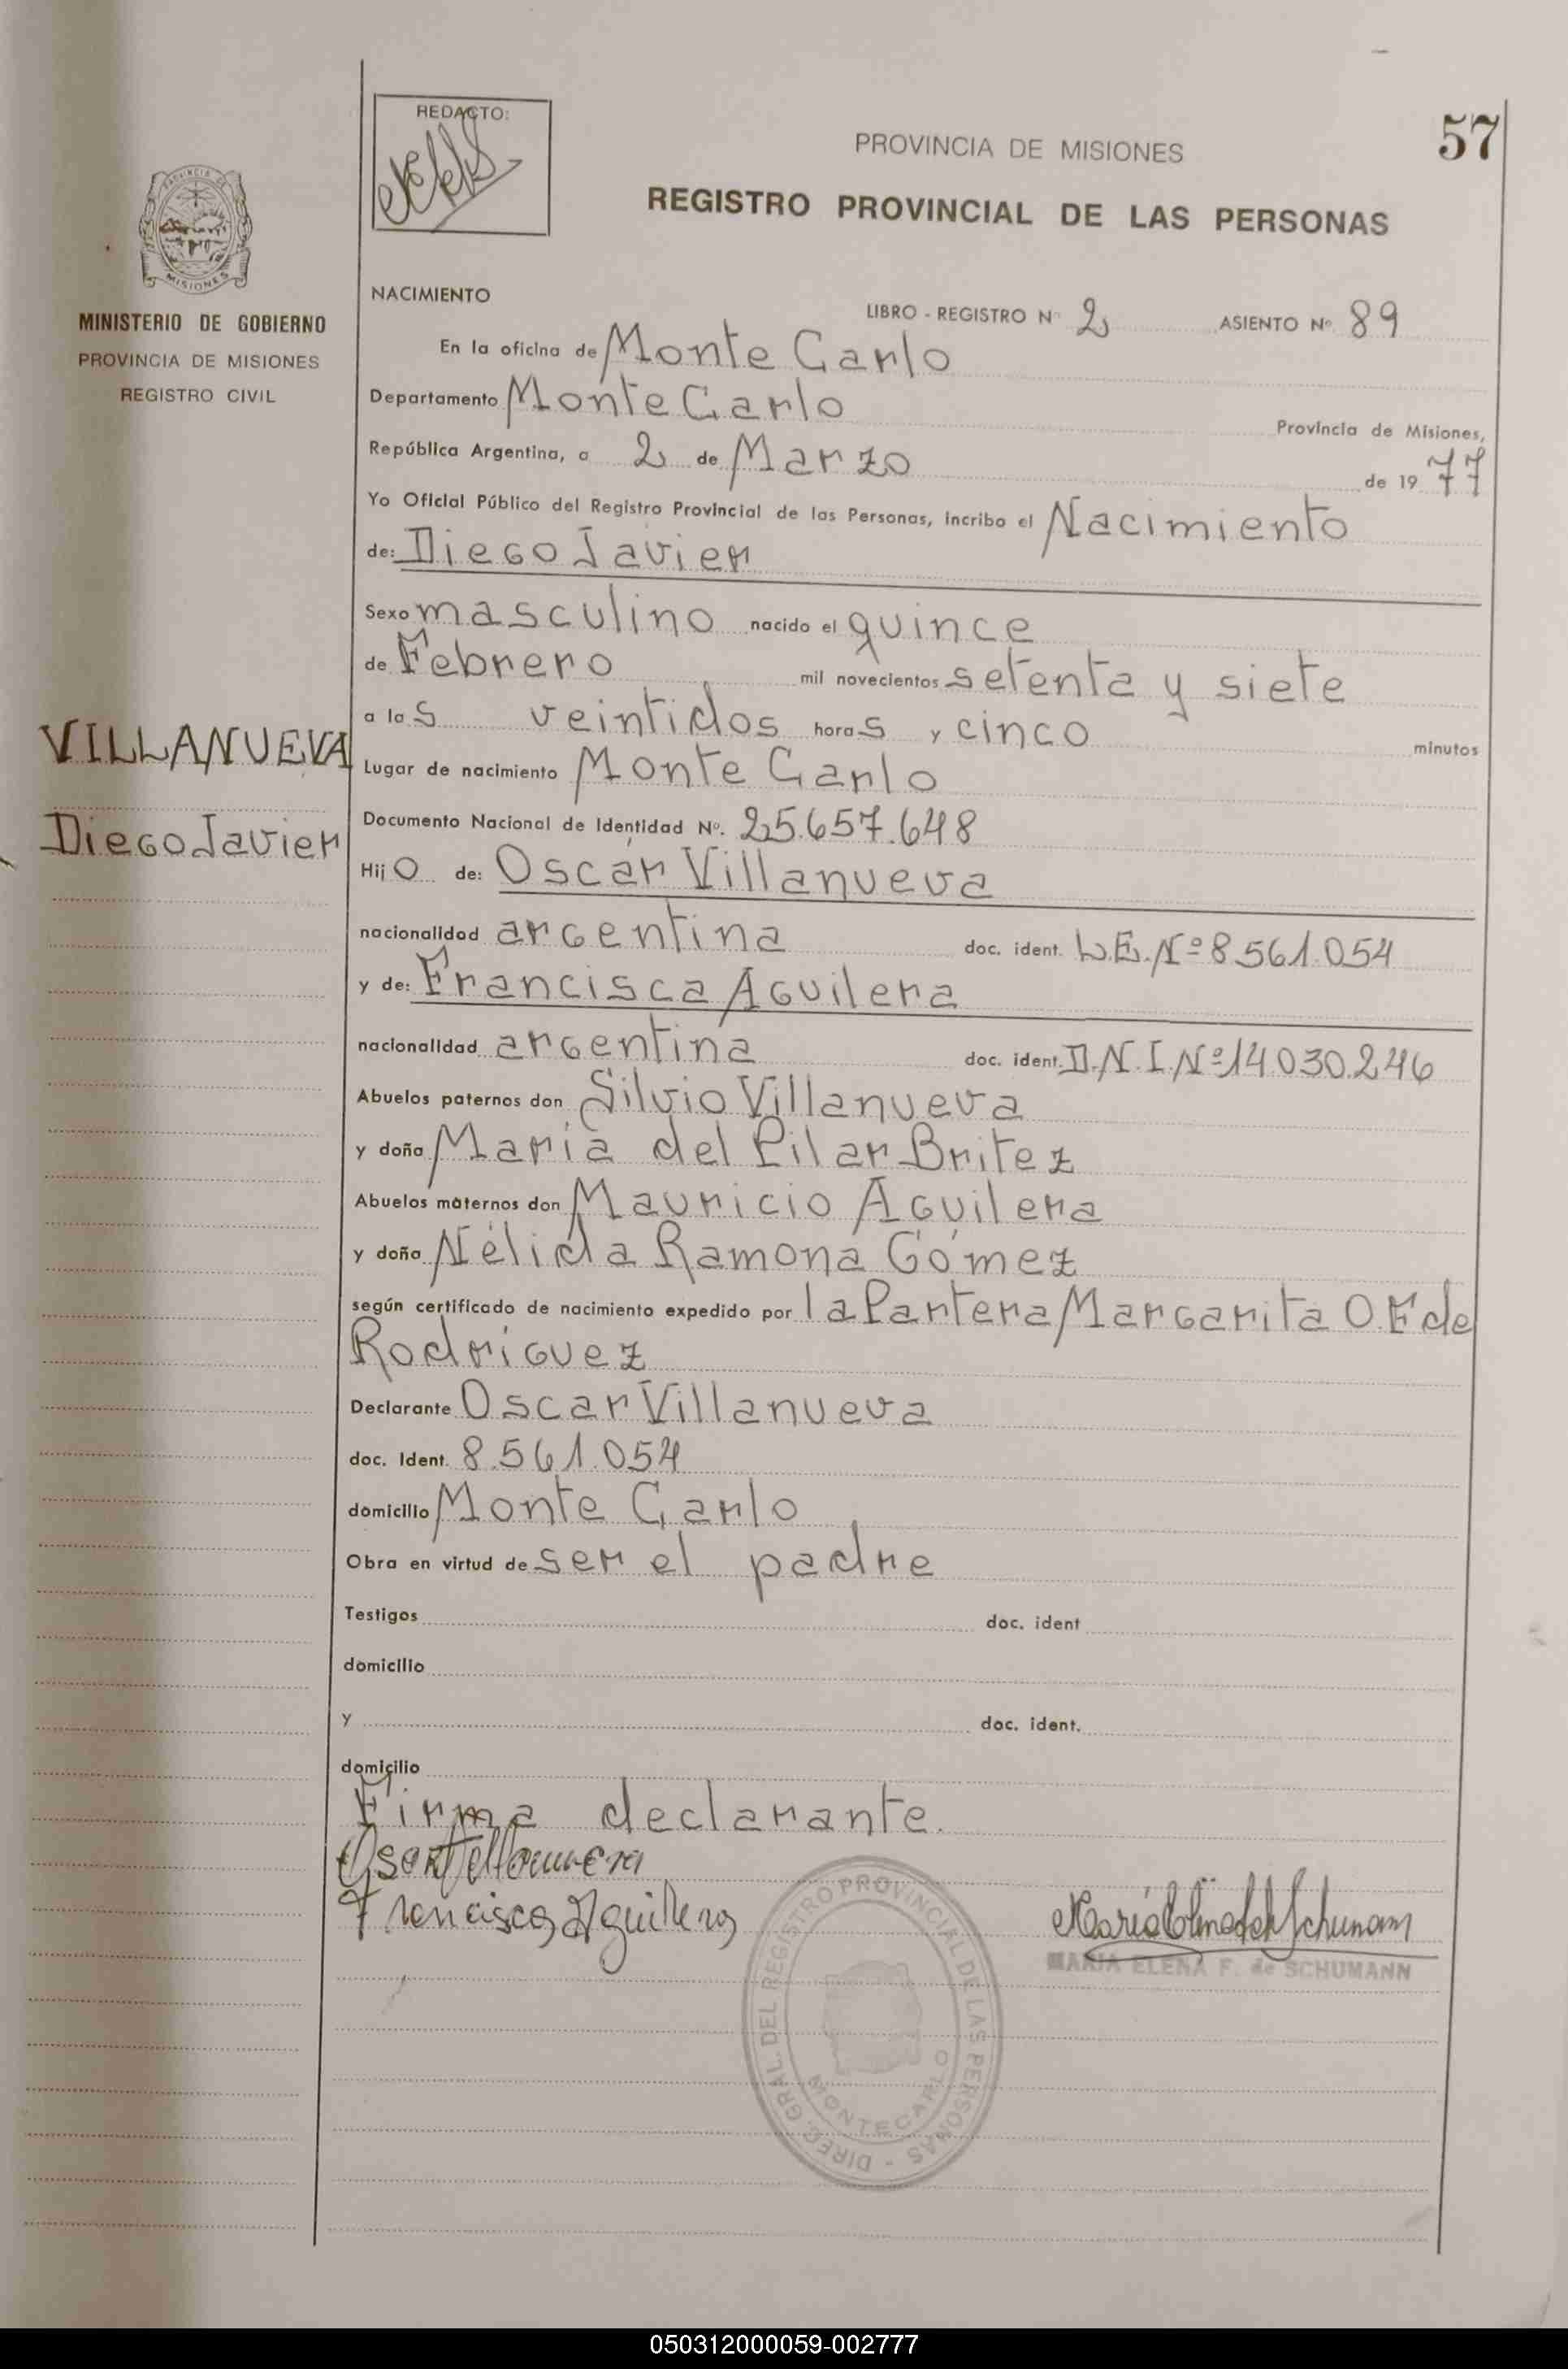 REDACTO:
PROVINCIA DE MISIONES
57
REGISTRO PROVINCIAL DE LAS PERSONAS
MISIONES
MINISTERIO DE GOBIERNO
PROVINCIA DE MISIONES
REGISTRO CIVIL
NACIMIENTO
LIBRO - REGISTRO Nº 2 ASIENTO Nº 89
En la oficina de Monte Carlo
Departamento Monte Carlo Provincia de Misiones,
República Argentina, a 2 de Marzo de 1977
Yo Oficial Público del Registro Provincial de las Personas, incribo el Nacimiento
de: Diego Javier
Sexo masculino nacido el quince
de Febrero mil novecientos setenta y siete
a las veintidos horas y cinco minutos
VILLANUEVA
Diego Javier
Lugar de nacimiento Monte Carlo
Documento Nacional de Identidad Nº. 25.657.648
Hijo de: Oscar Villanueva
nacionalidad argentina doc. ident. L.E. Nº 8.561.054
y de: Francisca Aguilera
nacionalidad argentina doc. ident. D.N.I. Nº 14.030.246
Abuelos paternos don Silvio Villanueva
y doña María del Pilar Britez
Abuelos maternos don Mauricio Aguilera
y doña Nélida Ramona Gómez
según certificado de nacimiento expedido por la Partera Margarita O. F de
Rodríguez
Declarante Oscar Villanueva
doc. Ident. 8.561.054
domicilio Monte Carlo
Obra en virtud de ser el padre
Testigos doc. ident
domicilio
y doc. ident.
domicilio
Firma declarante.
Francisca Aguilera
MARIA ELENA F. de SCHUMANN
DIREC. GRAL. DEL REGISTRO PROVINCIAL DE LAS PERSONAS
MONTECARLO
050312000059-002777